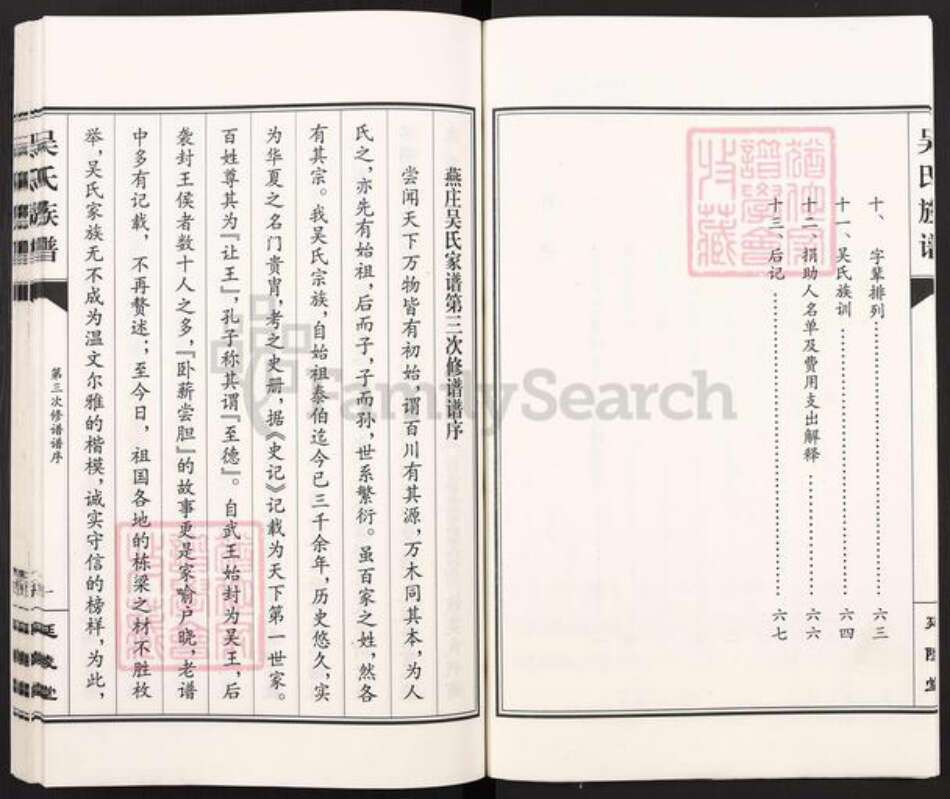 吴氏族谱
十、字辈排列……………………六三
十一、吴氏族训……………………六四
十二、捐助人名单及费用支出解释…………六六
十三、后记……………………六七
燕庄吴氏家谱第三次修谱谱序
尝闻天下万物皆有初始，谓百川有其源，万木同其本，为人
氏之，亦先有始祖，后而子，子而孙，世系繁衍。虽百家之姓，然各
有其宗。我吴氏宗族，自始祖泰伯迄今已三千余年，历史悠久，实
为华夏之名门贵胄，考之史册，据《史记》记载为天下第一世家。
百姓尊其为『让王』，孔子称其谓『至德』。自武王始封为吴王，后
袭封王侯者数十人之多，『卧薪尝胆』的故事更是家喻户晓，老谱
中多有记载，不再赘述；至今日，祖国各地的栋梁之材不胜枚
举，吴氏家族无不成为温文尔雅的楷模，诚实守信的榜样，为此，
吴氏族谱
第三次修谱谱序
一
FamilySearch